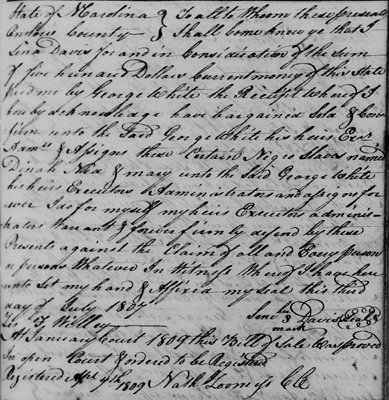 State of N Carolina } To all to Whom these presents
Onslow County } Shall come know ye that I
Davis for and in Consideration of the Sum
of five hundred Dollars Current money of this State
paid me by George White the Receipt Whereof I
hereby acknowledge have bargained Sold & Con
firm unto the Said George White his heirs Exrs
Adms & Assigns three Certain Negro Slaves named
Dinah & mary unto the Said George White
his heirs Executors & Administrators and assigns for
ever I do for myself my heirs Executors adminis
trators Warrant & forever firmly defend by these
Presents against the Claim of all and Every person
or persons Whatever In Witness Whereof I have here
unto Set my hand & Affixed my seal this third
day of July 1807
Davis Seal
mark
January Court 1809 this Bill of Sale Was proved
In open Court & ordered to be Registered
Registered 9th 1809 Nath Loomis